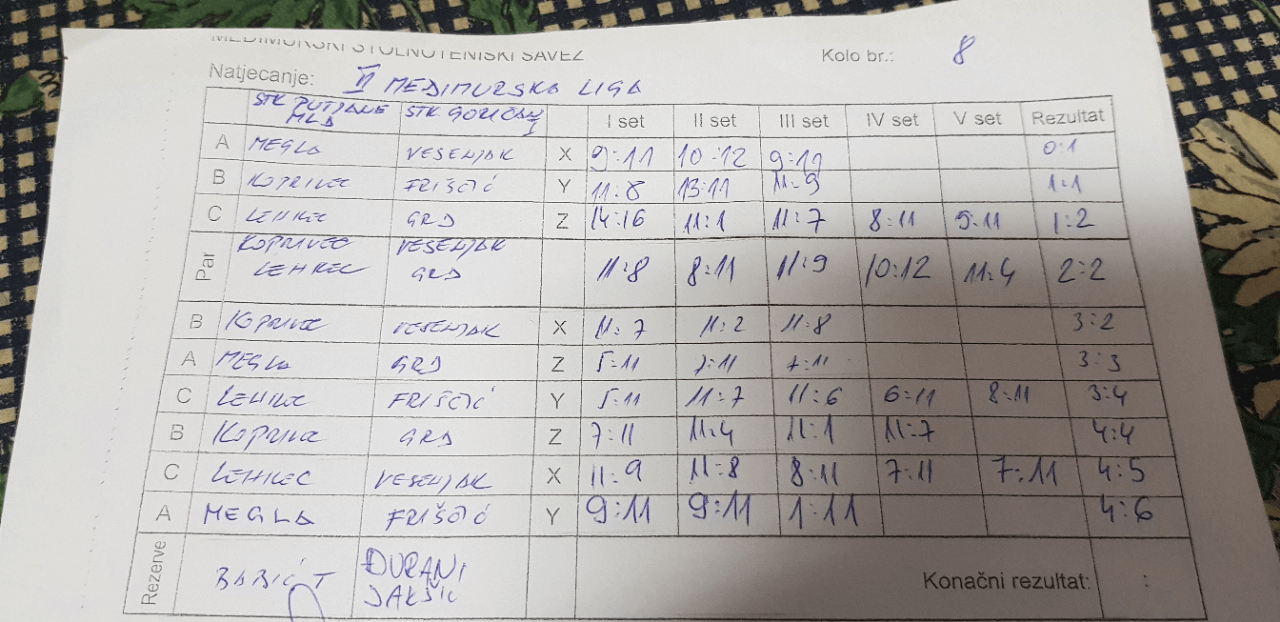 MEĐIMURSKI STOLNOTENISKI SAVEZ
Kolo br.: 8
Natjecanje: II MEĐIMURSKA LIGA
STK PUTJANE MLA STK GORIČAN I I set II set III set IV set V set Rezultat
A MEGLA VESENJAK X 9:11 10:12 9:11 0:1
B KOPRIVEC FRIŠČIĆ Y 11:8 13:11 11:9 1:1
C LEHKEC GRD Z 14:16 11:1 11:7 8:11 9:11 1:2
Par KOPRIVEC VESENJAK
LEHKEC GRD 11:8 8:11 11:9 10:12 11:4 2:2
B KOPRIVEC VESENJAK X 11:7 11:2 11:8 3:2
A MEGLA GRD Z 5:11 7:11 7:11 3:3
C LEHKEC FRIŠČIĆ Y 5:11 11:7 11:6 6:11 8:11 3:4
B KOPRIVEC GRD Z 7:11 11:4 11:1 11:7 4:4
C LEHKEC VESENJAK X 11:9 11:8 8:11 7:11 7:11 4:5
A MEGLA FRIŠČIĆ Y 9:11 9:11 1:11 4:6
Rezerve BABIĆ T ĐURANI
JAKŠIĆ
Konačni rezultat: :